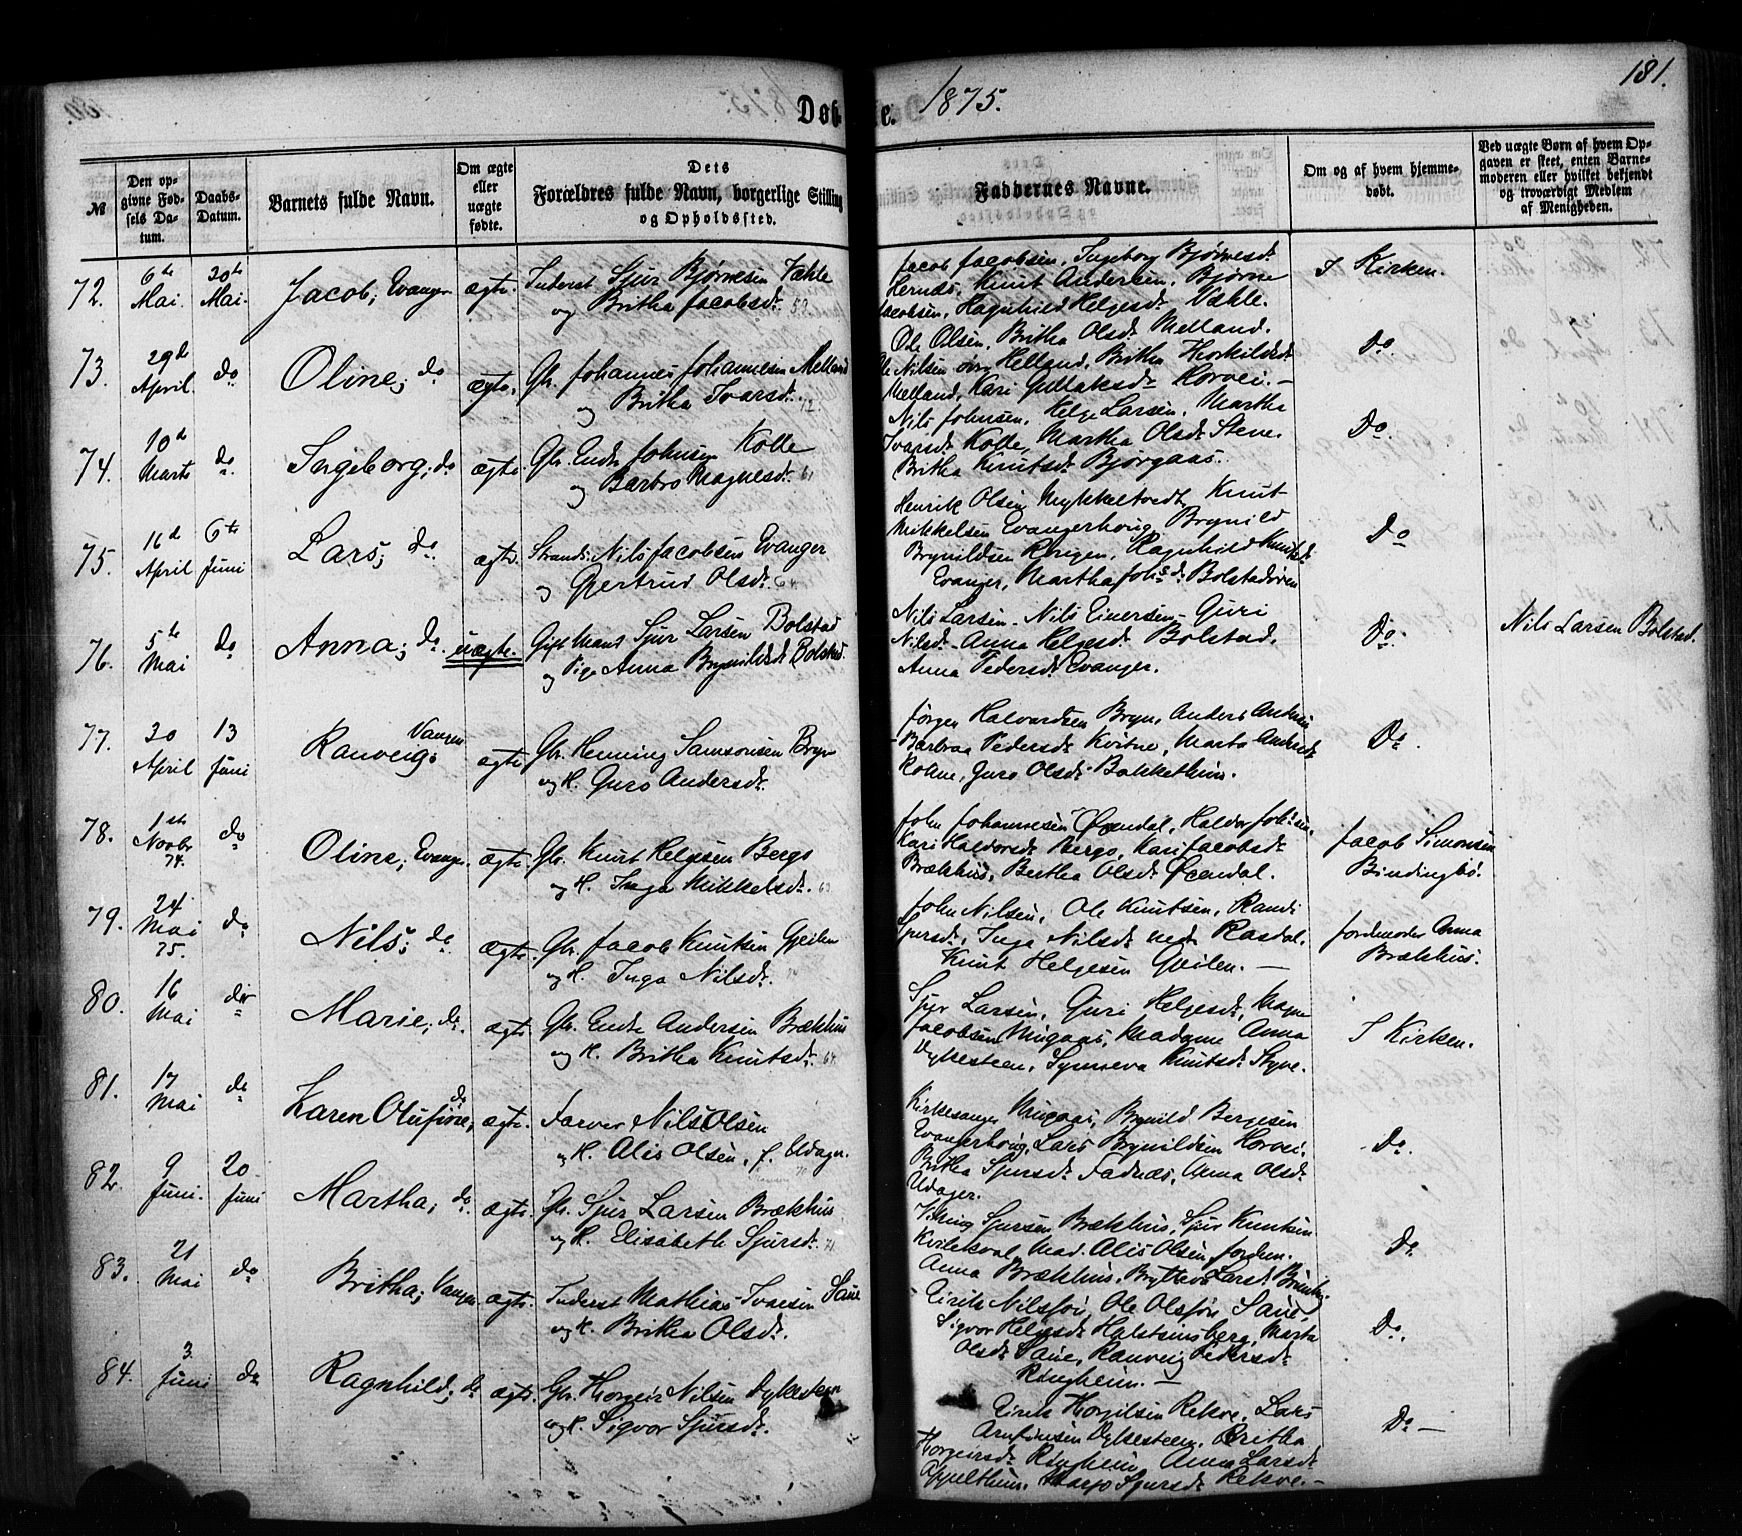 181.
Døb
te. 1875.
№
Den op-
givne Fød-
sels Da-
tum.
Daabs-
Datum.
Barnets fulde Navn.
Om ægte
eller
uægte
fødte.
Dets
Forældres fulde Navn, borgerlige Stilling
og Opholdssted.
Faddernes Navne.
Om og af hvem hjemme-
døbt.
Ved uægte Børn af hvem Op-
gaven er skeet, enten Barne-
moderen eller hvilket bekjendt
og troværdigt Medlem
af Menigheden.
72. 6te Mai. 20de Mai. Jacob; Evanger ægte.
Inderst Sjur Bjørnesen Væhle
og Britha Jacobsdt. 52.
Jacob Jacobsen, Ingeborg Bjørnesdt
Hernæs, Knut Andersen, Bjørne
Jacobsen, Ragnhild Helgesdt Væhle.
I Kirken.
73. 29de April. do Oline; do ægte.
Gbr. Johannes Johannesen Melland
og Britha Ivarsdt. 72.
Ole Olsen, Britha Olsdt Melland.
Ole Nilsen Helland, Britha Thorkildsdt
Melland, Kari Gullaksdt Horvei. –
Do.
74. 10de Marts do Ingeborg; do ægte.
Gbr. Endre Johnsen Kolle
og Barbro Magnesdt. 61
Nils Johnsen, Helge Larsen, Martha
Ivarsdt Kolle, Martha Olsdt Stene.
Britha Knutsdt Bjørgaas.
Do.
75. 16de April 6te Juni Lars; do ægte.
Strands. Nils Jacobsen Evanger
og Gjertrud Olsdt. 64
Henrik Olsen Mykkeltvedt, Knut
Mikkelsen Evangerhoug, Brynild
Brynildsen Ringen, Ragnhild Knutsdt
Evanger, Martha Johsdt Bolstadøren
Do
76. 5te Mai do Anna; do. uægte.
Gift Mand Sjur Larsen Bolstad
og Pige Anna Brynildsdt Bolstad.
Nils Larsen – Nils Einersen – Guri
Nilsdt – Anna Helgesdt Bolstad,
Anna Pedersdt Evanger.
Do.
Nils Larsen Bolstad.
77. 30 April 13 Juni Ranveig; Vangen ægte
Gbr. Henning Samsonsen Bryn
og H. Guro Andersdt.
Jørgen Halvardsen Bryn, Anders Andersen
– Barbraa Pedersdt Kvitne, Marta Andersdt
Rokne, Guro Olsdt Bakkethun.
Do.
78. 1ste Novbr 74. do Oline; Evanger. ægte.
Gbr. Knut Helgesen Bergo
og H. Inga Mikkelsdt. 63
John Johannesen Øxendal, Haldor Johsen,
Kari Haldorsdt Bergo, Kari Jacobsdt
Brækhus, Bertha Olsdt Øxendal.
Jacob Simonsen
Bindingbø.
79. 24 Mai 75. do Nils; do ægte.
Gbr. Jacob Knutsen Gjeilen
og H. Inga Nilsdt.
John Nilsen, Ole Knutsen, Randi
Sjursdt, Inga Nilsdt nedr Rasdal,
Knut Helgesen Gjeilen. —
Jordmoder Anna
Brækhus.
80. 16 Mai do Marie; do. ægte.
Gbr. Endre Andersen Brækhus
og H. Britha Knutsdt. 64
Sjur Larsen, Guri Helgesdt, Magne
Jacobsen Mugaas, Madame Anna
Dykesteen, Synneva Knutsdt Styve.
I Kirken.
81. 17 Mai do Karen Olufine; do ægte.
Farver Nils Olsen
og H. Alis Olsen, f. Udager.
Kirkesanger Mugaas, Brynild Bergesen
Evangerhoug, Lars Brynildsen Horvei,
Britha Sjursdt Fadnæs, Anna Olsdt
Udager.
Do.
82. 9 Juni. 20 Juni Martha; do. ægte.
Gbr. Sjur Larsen Brækhus
og H. Elisabeth Sjursdt. 71
Viking Sjursen Brækhus, Sjur Knutsen
Kvilekval, Mad. Alis Olsen, Jordm.
Anna Brækhus, Bryttev Larsdt
Do
83. 21 Mai do Britha; Vangen ægte.
Inderst Mathias Ivarsen Saue
og H. Britha Olsdt.
Eirik Nilssøn, Ole Olssøn Saue,
Sigvor Helgesdt Halstensberg, Marta
Olsdt Saue, Ranveig Pedersdt
Ringheim. —
Do.
84. 3 Juni do Ragnhild; do ægte.
Gbr. Thorgeir Nilsen Dykesteen
og H. Sigvor Sjursdt.
Eirik Thorgilsen Rekve, Lars
Arnfinsen Dykesteen, Britha
Thorgeirsdt Ringheim, Anna Larsdt
Appelthun, Marjo Sjursdt Rekve. –
Do –